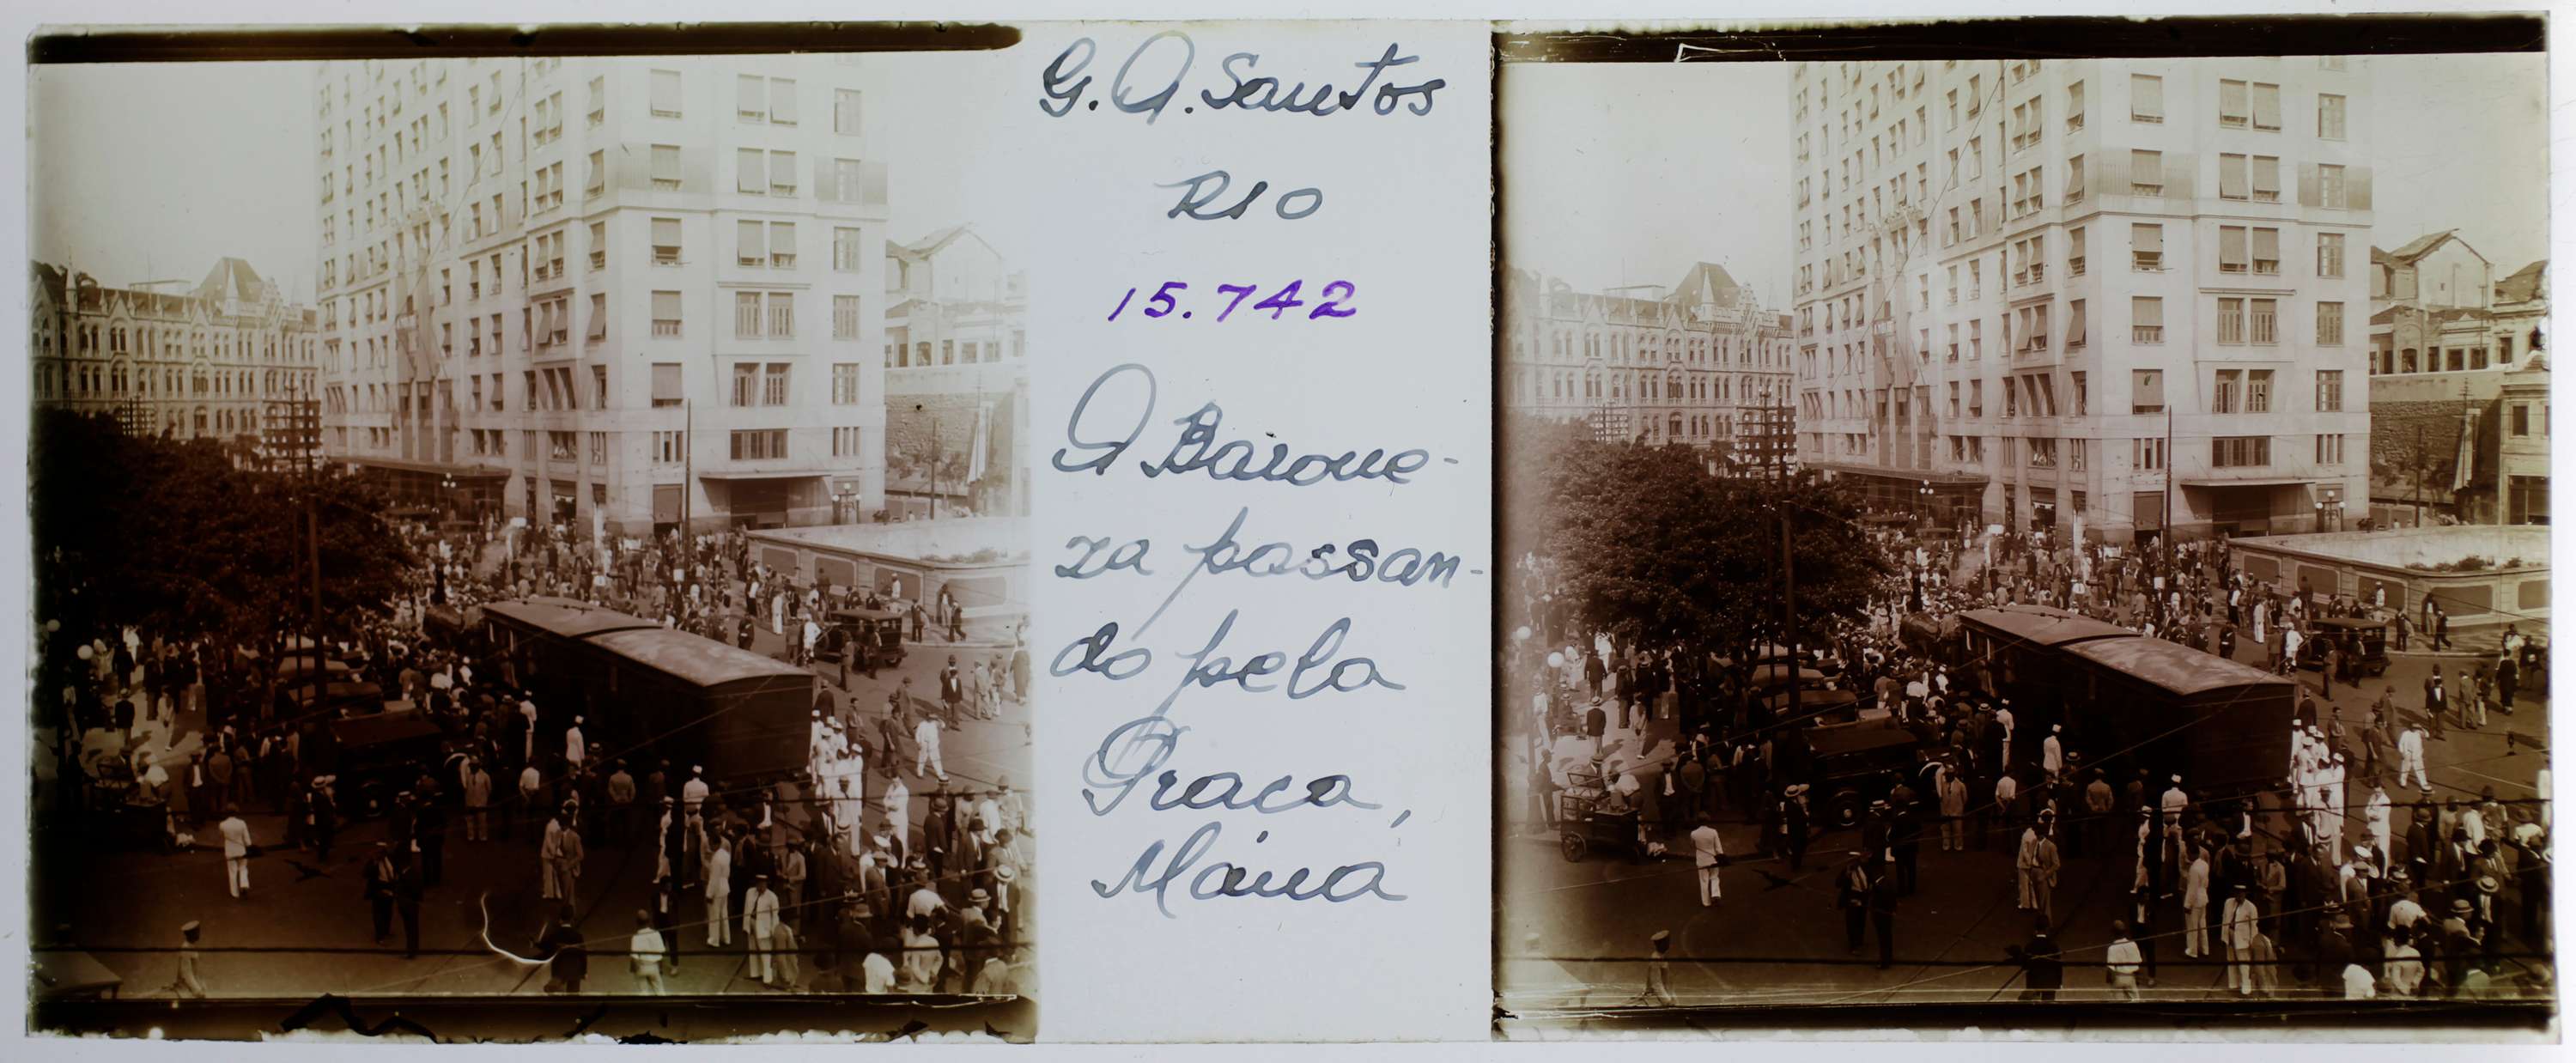 G. A. Santos
RIO
15.742
A Barone-
za passan-
do pela
Praça,
Máua